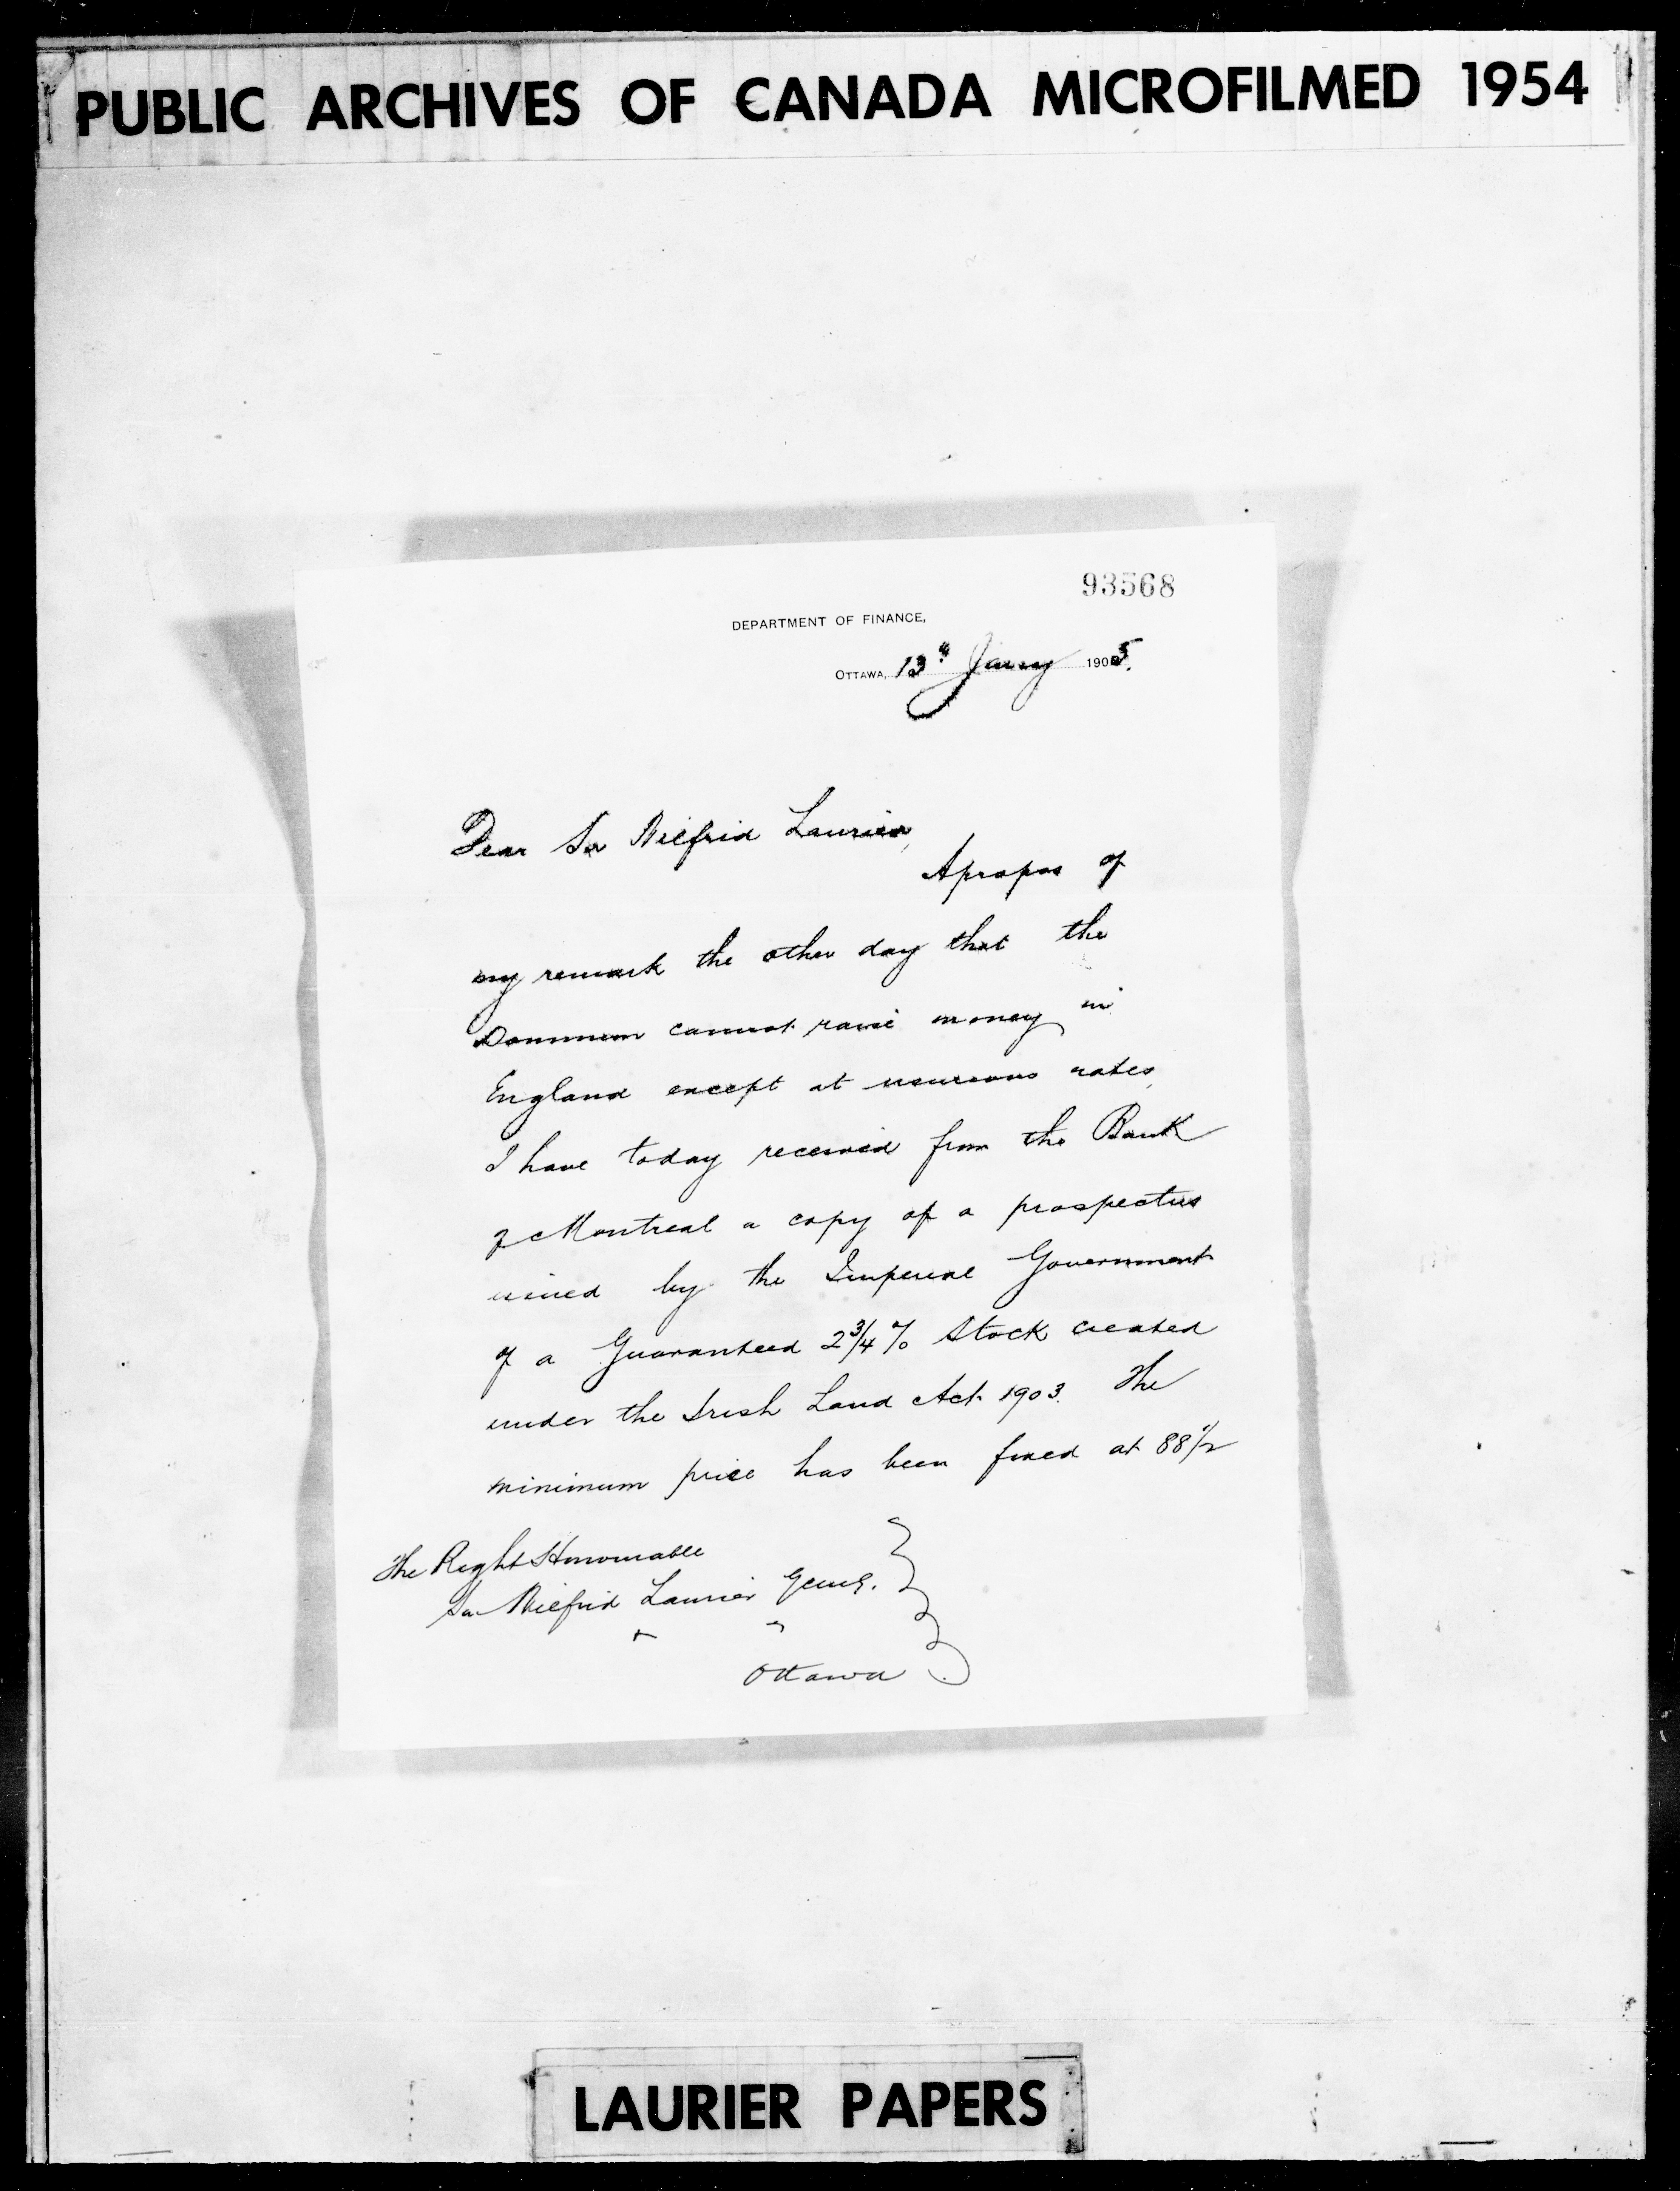 PUBLIC ARCHIVES OF CANADA MICROFILMED 1954
93568
DEPARTMENT OF FINANCE,
OTTAWA, 13th Jany 1905.
Dear Sir Wilfrid Laurier,
Apropos of
my remark the other day that the
Dominion cannot raise money in
England except at usurious rates,
I have today received from the Bank
of Montreal a copy of a prospectus
issued by the Imperial Government
of a Guaranteed 2 3/4 % Stock created
under the Irish Land Act 1903. The
minimum price has been fixed at 88 1/2
The Right Honourable
Sir Wilfrid Laurier G.C.M.G.
Ottawa
LAURIER PAPERS